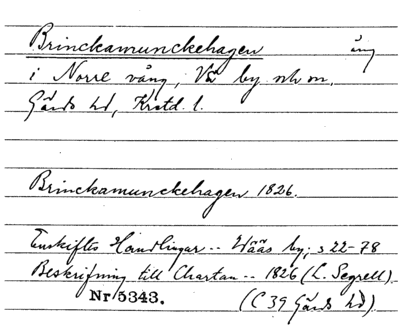 Brinckamunckehagen äng
i Norre vång, Vä by och sn,
Gärds hd, Krstd. l.
Brinckamunckehagen 1826.
Enskiftes Handlingar -- Wääs by, s 22-78
Beskrifning till Chartan -- 1826 (L. Segrell).
Nr 5343. (C 39 Gärds hd).